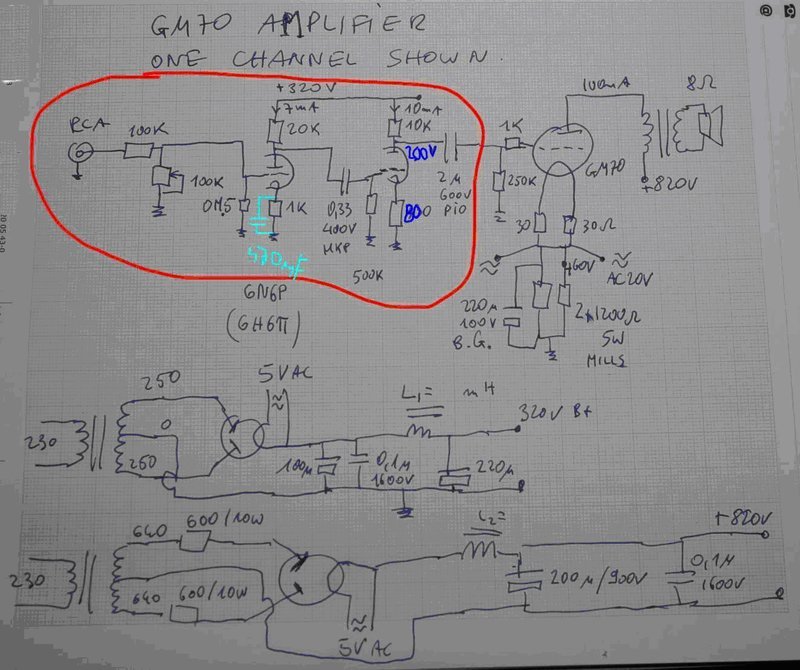 GM70 AMPLIFIER
ONE CHANNEL SHOWN.
+320V
7mA
10mA
100mA
8Ω
RCA
100K
20K
10K
1K
200V
GM70
100K
2µ
600V
PIO
250K
+820V
0M5
1K
0,33
400V
MKP
800
30
30Ω
470mF
500K
+60V
AC20V
6N6P
(6H6П)
220µ
100V
B.G.
2x1200Ω
5W
MILLS
250
5VAC
L1= mH
320V B+
230
0
250
100µ
0,1µ
1600V
220µ
600/10W
640
L2=
+820V
230
640
600/10W
200µ/900V
0,1µ
1600V
5VAC